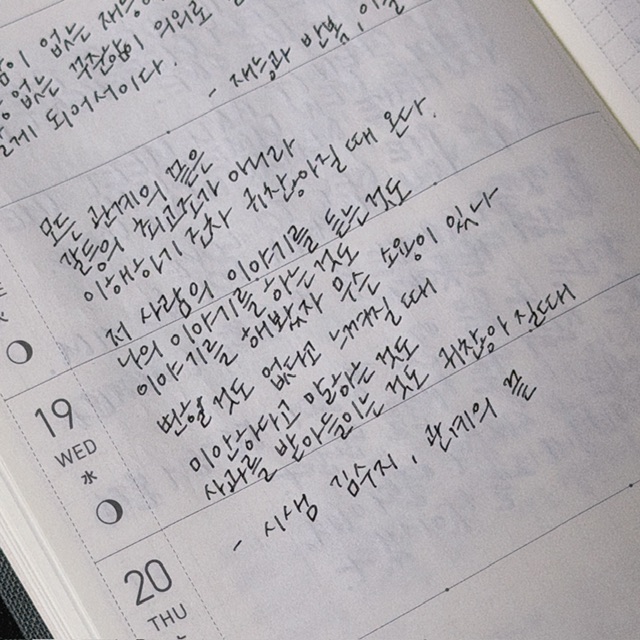 없는 재능
없는 꾸준함이 의외로
되어서이다.
- 재능과 반복, 이슬
모든 관계의 끝은
갈등의 최고조가 아니라
이해하기조차 귀찮아질 때 온다.
저 사람의 이야기를 듣는 것도
나의 이야기를 하는 것도
이야기를 해봤자 무슨 소용이 있나
변할 것도 없다고 느껴질 때
미안하다고 말하는 것도
사과를 받아들이는 것도 귀찮아 질때
- 시생 김수지, 관계의 끝
19
WED
水
20
THU